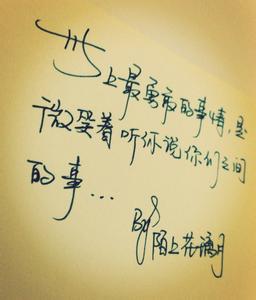 世上最勇敢的事情,是
微笑着听你说你们之间
的事...
By 陌上花漪月